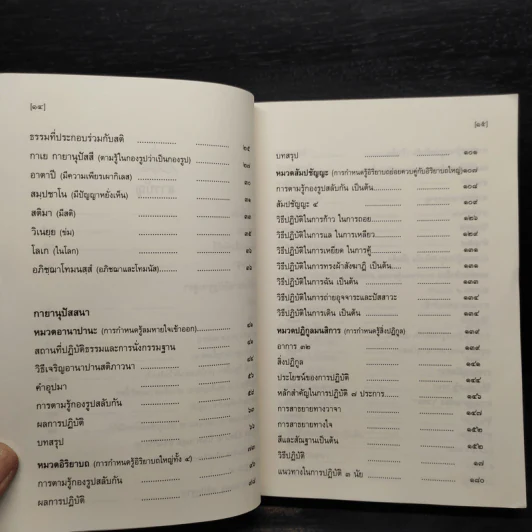 [๑๔]
ธรรมที่ประกอบร่วมกับสติ
กาเย กายานุปัสสี (ตามรู้ในกองรูปว่าเป็นกองรูป)
อาตาปี (มีความเพียรเผากิเลส)
สมฺปชาโน (มีปัญญาหยั่งเห็น)
สติมา (มีสติ)
วิเนยฺย (ข่ม)
โลเก (ในโลก)
อภิชฺฌาโทมนสฺสํ (อภิชฌาและโทมนัส)
กายานุปัสสนา
หมวดอานาปานะ (การกำหนดรู้ลมหายใจเข้าออก)
สถานที่ปฏิบัติธรรมและการนั่งกรรมฐาน
วิธีเจริญอานาปานสติภาวนา
คำอุปมา
การตามรู้กองรูปสลับกัน
ผลการปฏิบัติ
บทสรุป
หมวดอิริยาบถ (การกำหนดรู้อิริยาบถใหญ่ทั้ง ๔)
การตามรู้กองรูปสลับกัน
ผลการปฏิบัติ
[๑๕]
บทสรุป ๑๐๑
หมวดสัมปชัญญะ (การกำหนดรู้อิริยาบถย่อยควบคู่กับอิริยาบถใหญ่)๑๐๗
การตามรู้กองรูปสลับกัน เป็นต้น ๑๐๘
สัมปชัญญะ ๔ ๑๐๙
วิธีปฏิบัติในการก้าว ในการถอย ๑๒๖
วิธีปฏิบัติในการแล ในการเหลียว
วิธีปฏิบัติในการเหยียด ในการคู้
วิธีปฏิบัติในการทรงผ้าสังฆาฏิ เป็นต้น
วิธีปฏิบัติในการฉัน เป็นต้น
วิธีปฏิบัติในการถ่ายอุจจาระและปัสสาวะ
วิธีปฏิบัติในการเดิน เป็นต้น
หมวดปฏิกูลมนสิการ (การกำหนดรู้สิ่งปฏิกูล) ๑๓๙
อาการ ๓๒ ๑๓๙
สิ่งปฏิกูล ๑๔๑
ประโยชน์ของการปฏิบัติ
หลักสำคัญในการปฏิบัติ ๘ ประการ
การสาธยายทางวาจา ๑๔๗
การสาธยายทางใจ ๑๕๒
สีและสัณฐานเป็นต้น ๑๕๒
วิธีปฏิบัติ
แนวทางในการปฏิบัติ ๓ นัย ๑๘๐